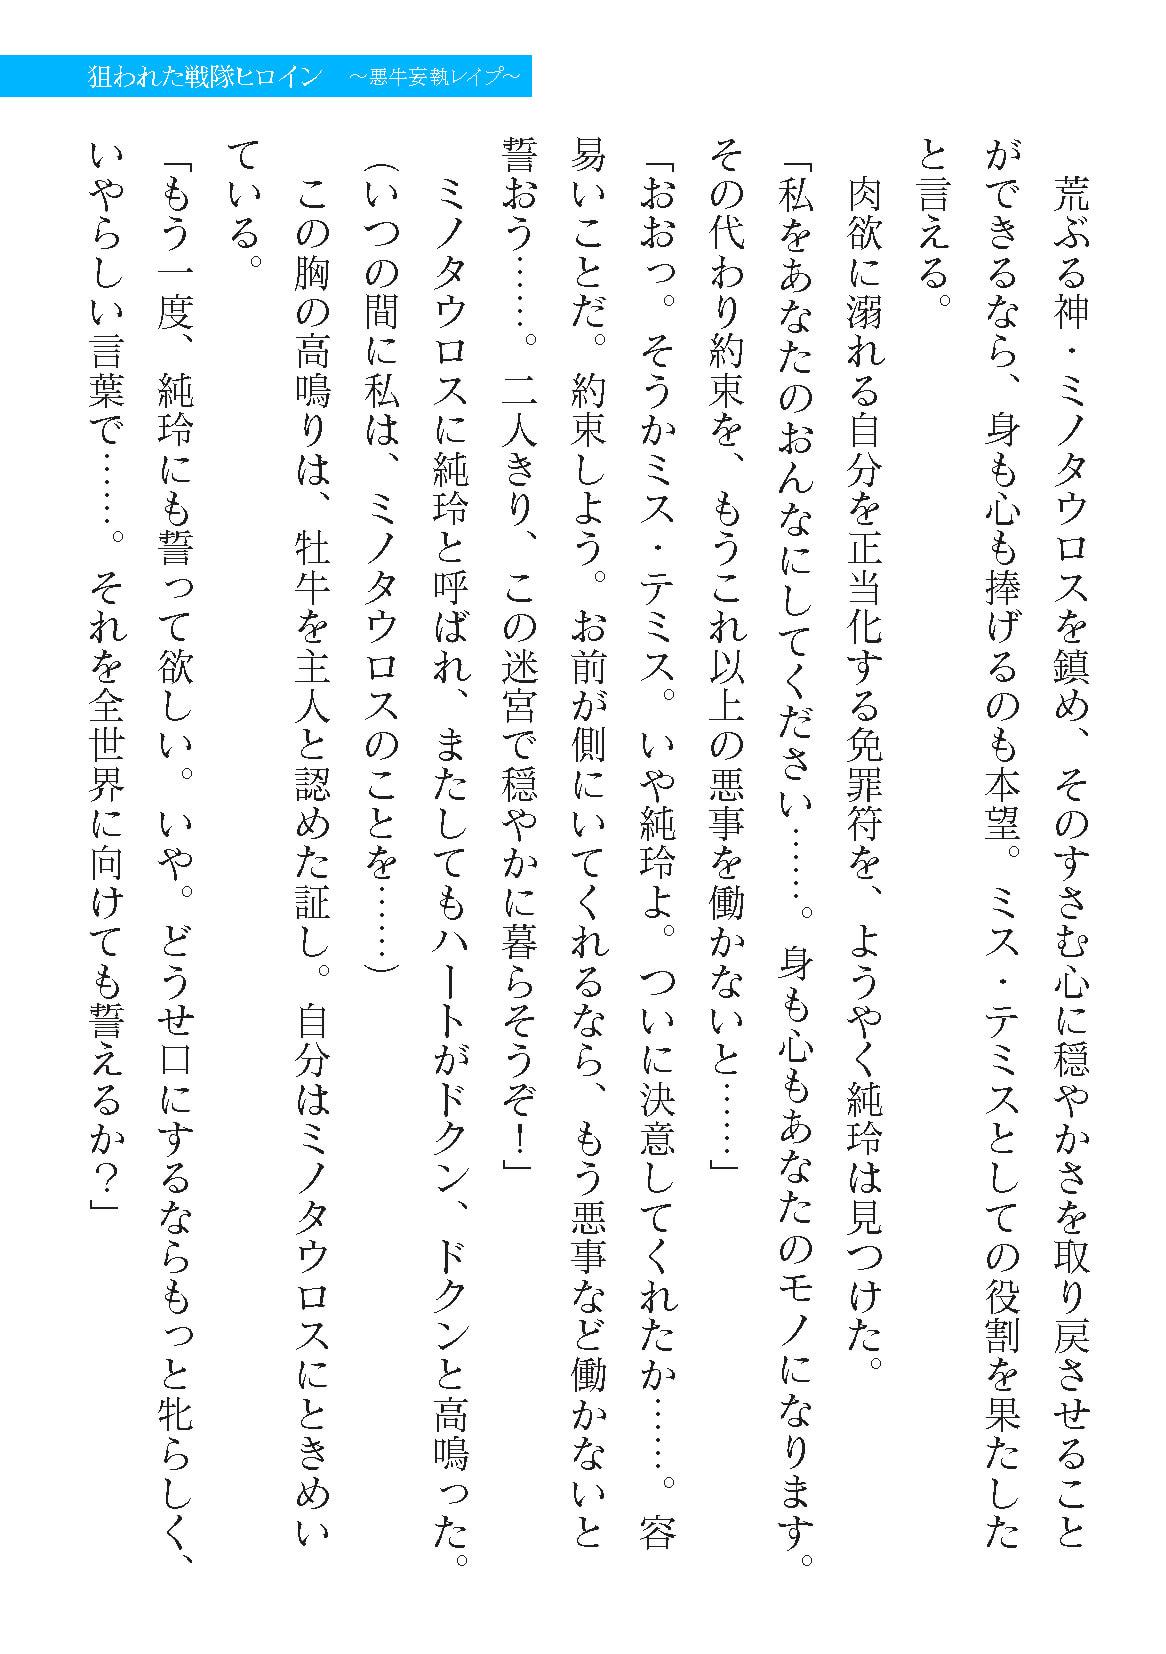 狙われた戦隊ヒロイン　～悪牛妄執レイプ～
　荒ぶる神・ミノタウロスを鎮め、そのすさむ心に穏やかさを取り戻させること
ができるなら、身も心も捧げるのも本望。ミス・テミスとしての役割を果たした
と言える。
　肉欲に溺れる自分を正当化する免罪符を、ようやく純玲は見つけた。
「私をあなたのおんなにしてください……。身も心もあなたのモノになります。
その代わり約束を、もうこれ以上の悪事を働かないと……」
「おおっ。そうかミス・テミス。いや純玲よ。ついに決意してくれたか……。容
易いことだ。約束しよう。お前が側にいてくれるなら、もう悪事など働かないと
誓おう……。二人きり、この迷宮で穏やかに暮らそうぞ！」
　ミノタウロスに純玲と呼ばれ、またしてもハートがドクン、ドクンと高鳴った。
（いつの間に私は、ミノタウロスのことを……）
　この胸の高鳴りは、牡牛を主人と認めた証し。自分はミノタウロスにときめい
ている。
「もう一度、純玲にも誓って欲しい。いや。どうせ口にするならもっと牝らしく、
いやらしい言葉で……。それを全世界に向けても誓えるか？」